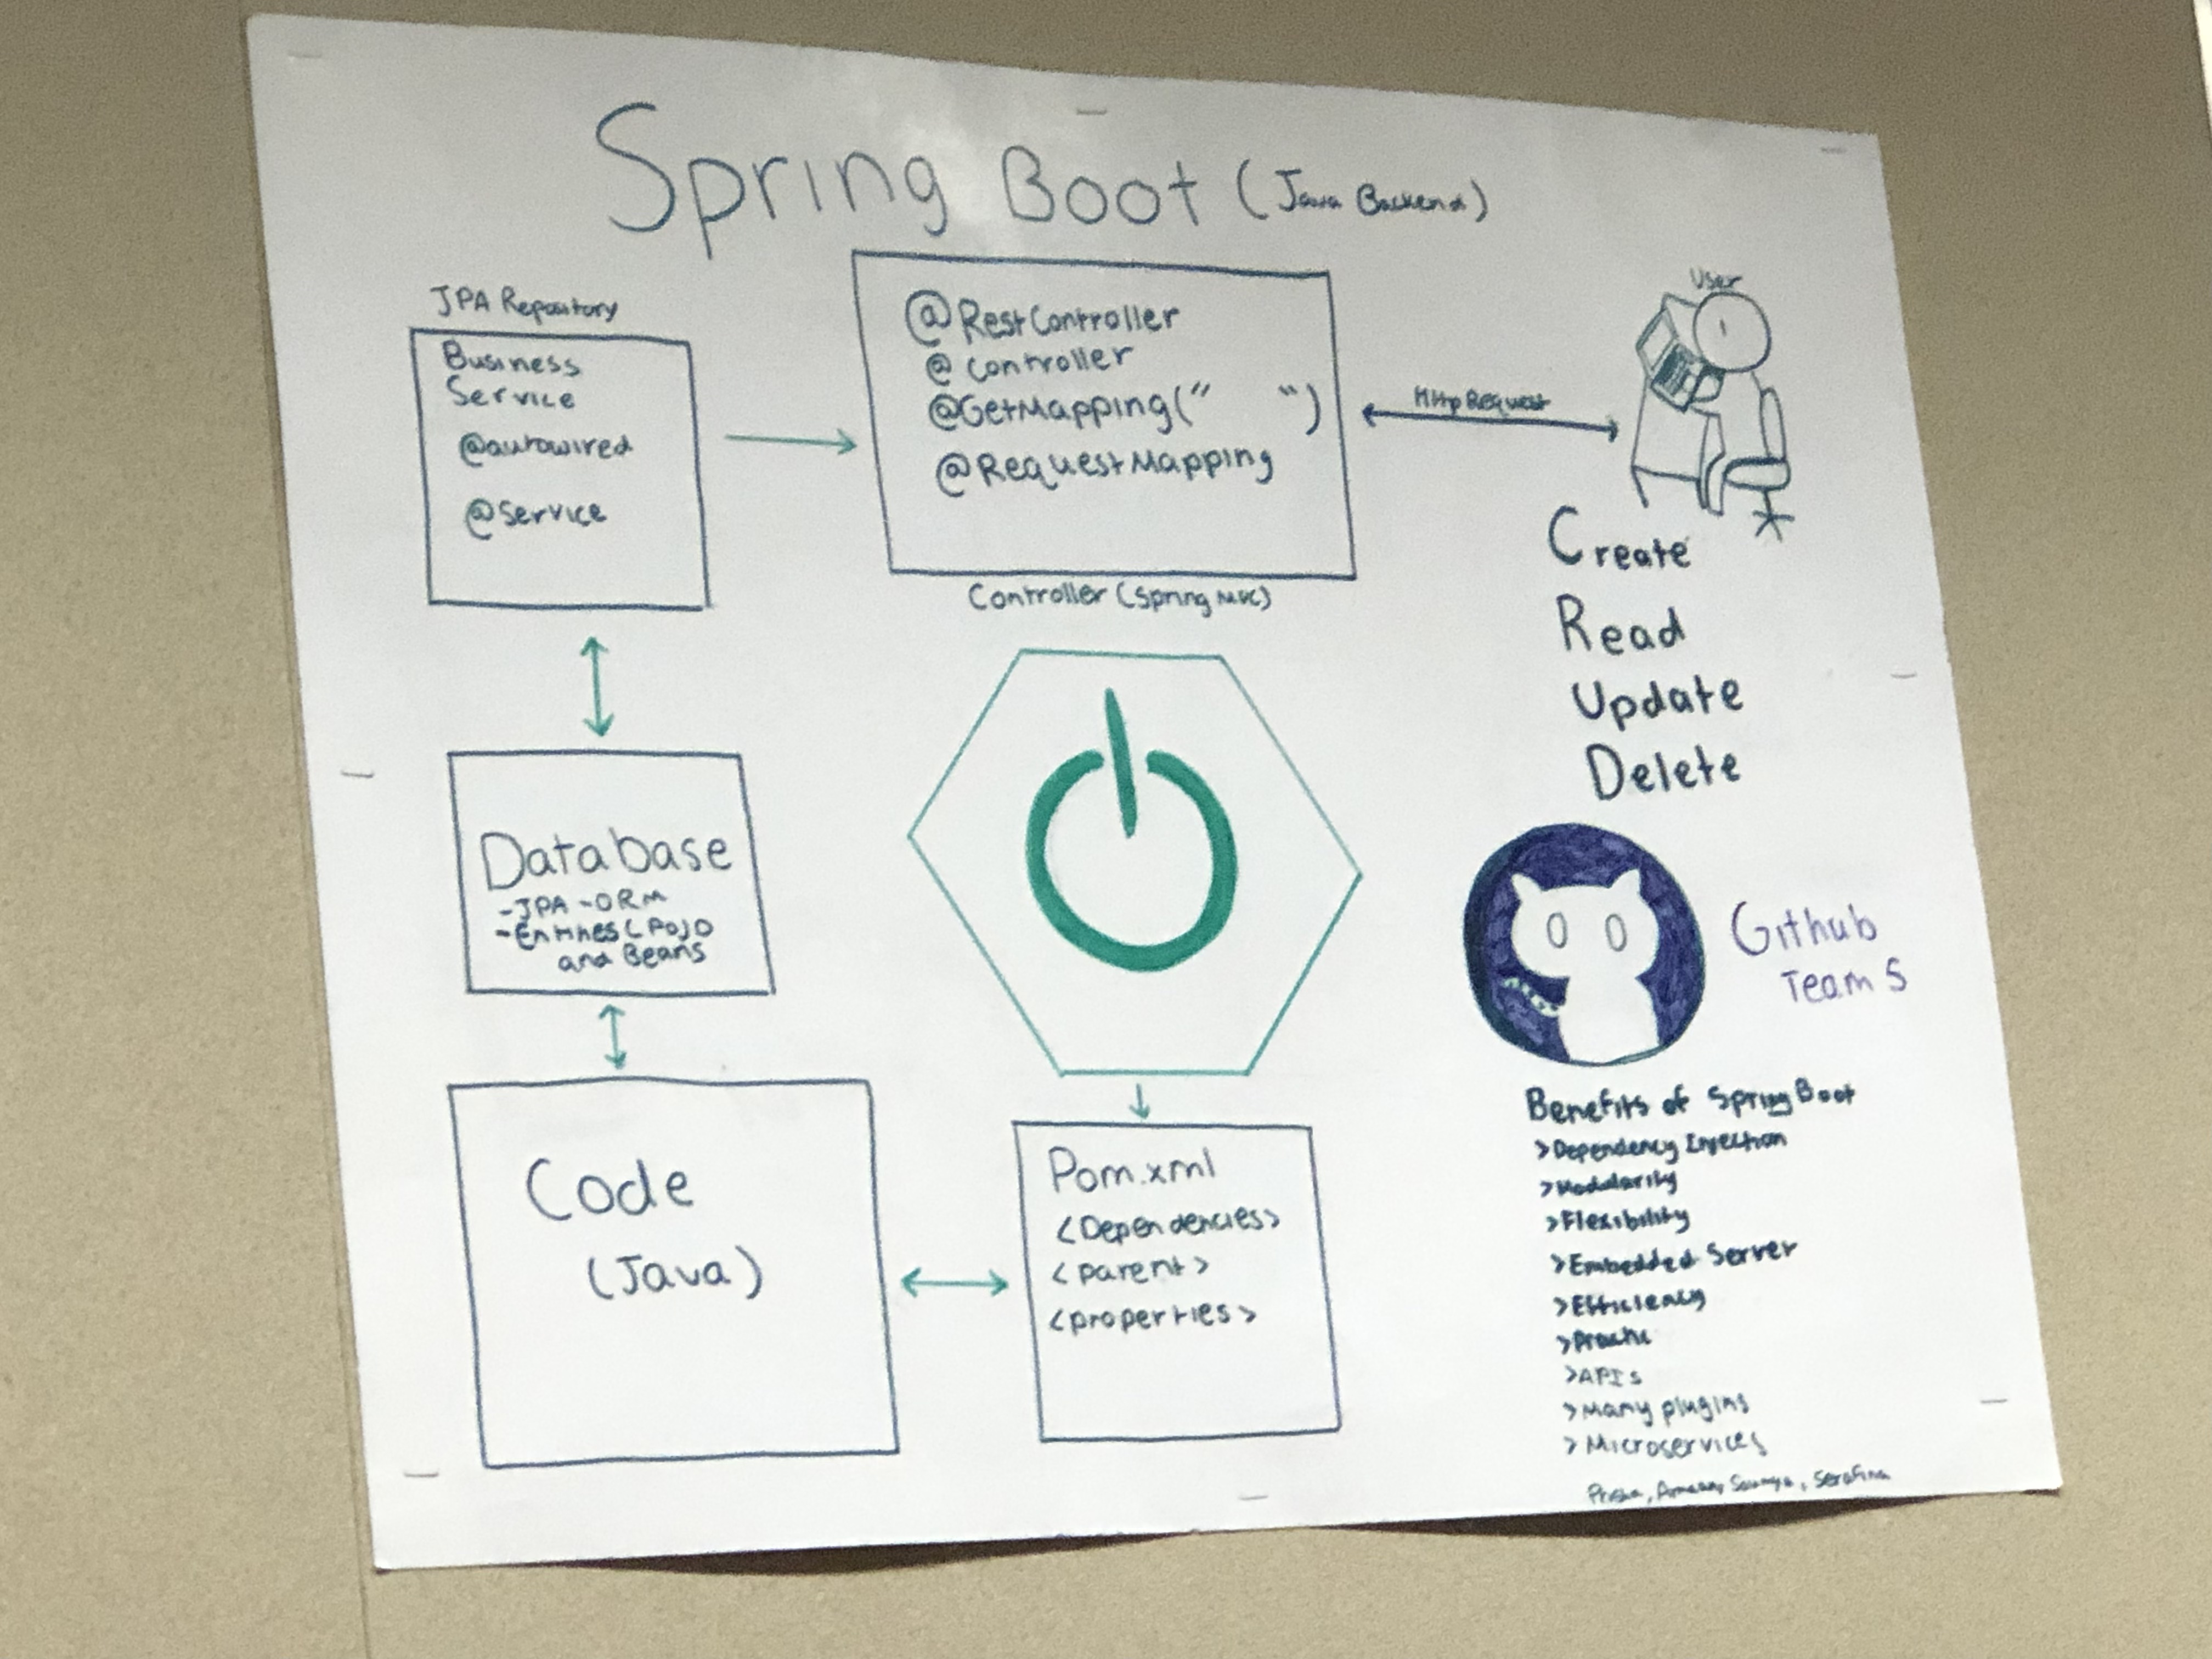 Spring Boot (Java Backend)
JPA Repository
Business
Service
@autowired
@Service
@RestController
@Controller
@GetMapping("     ")
@RequestMapping
Controller (Spring MVC)
Http Request
User
Create
Read
Update
Delete
Database
-JPA -ORM
-Entities (POJO
and Beans
Code
(Java)
Pom.xml
<Dependencies>
<parent>
<properties>
Github
Team 5
Benefits of Spring Boot
>Dependency Injection
>Modularity
>Flexibility
>Embedded Server
>Efficiency
>APIs
>Many plugins
>Microservices
Prisha, Amaan, Soumya, Serafina